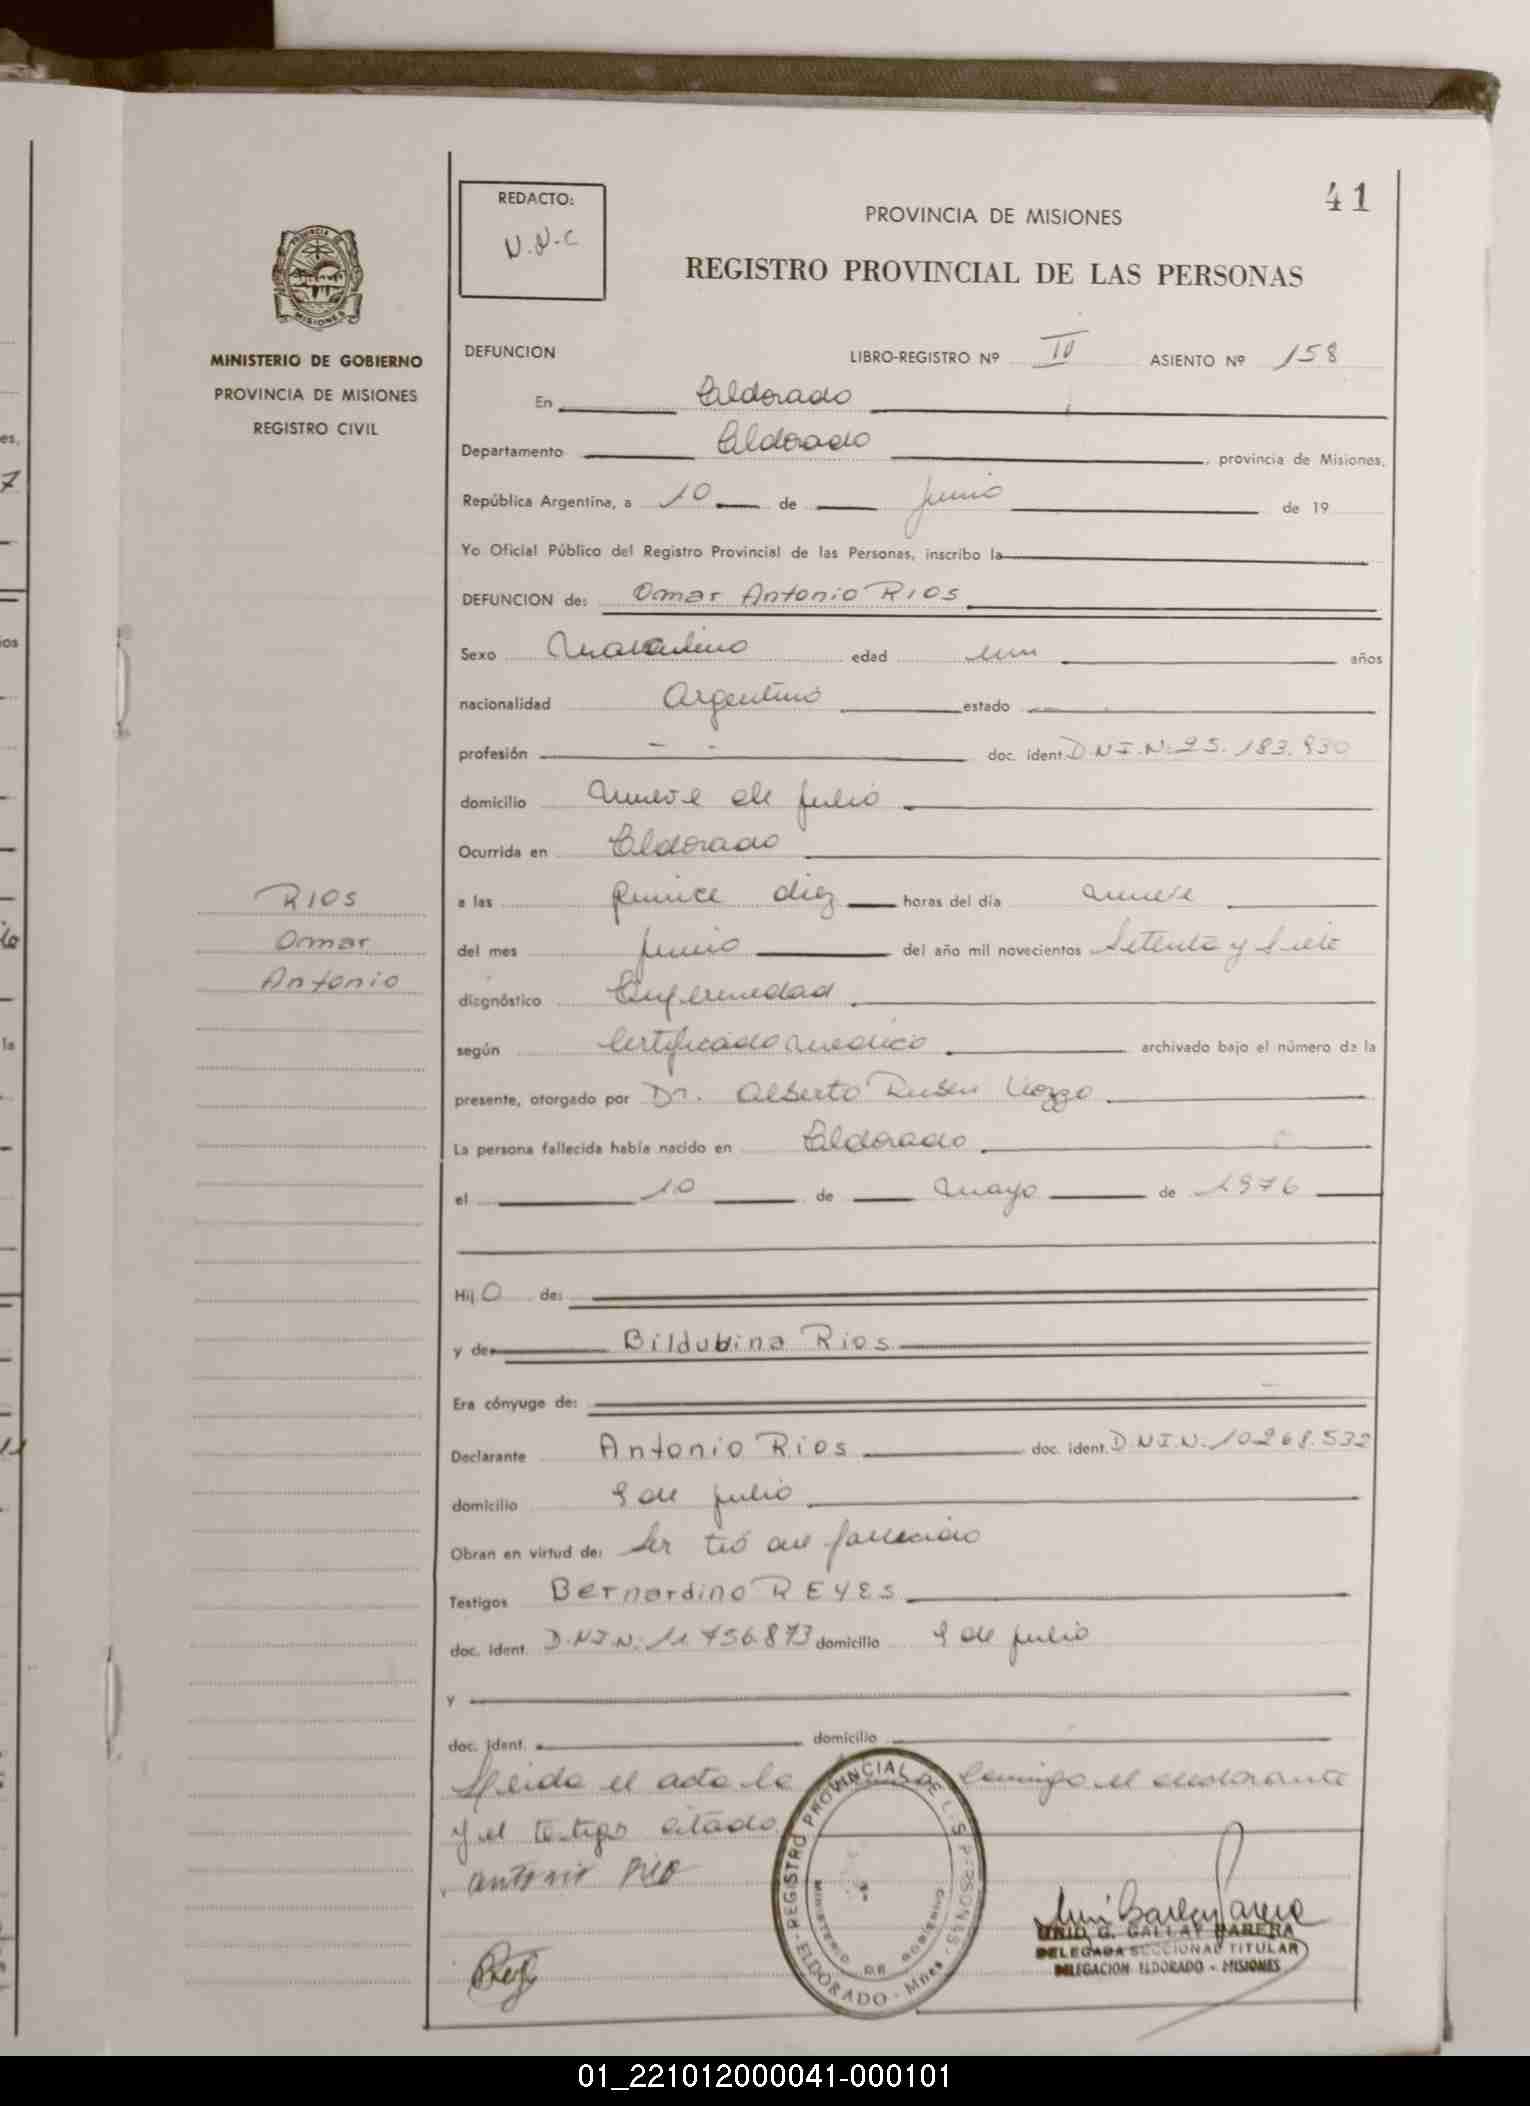 41
REDACTO:
PROVINCIA DE MISIONES
REGISTRO PROVINCIAL DE LAS PERSONAS
PROVINCIA DE
MISIONES
MINISTERIO DE GOBIERNO
PROVINCIA DE MISIONES
REGISTRO CIVIL
DEFUNCION LIBRO-REGISTRO Nº IV ASIENTO Nº 158
En Eldorado
Departamento Eldorado, provincia de Misiones,
República Argentina, a 10 de junio de 19
Yo Oficial Público del Registro Provincial de las Personas, inscribo la
DEFUNCION de: Omar Antonio RIOS
Sexo Masculino edad un años
nacionalidad Argentino estado
profesión - - doc. ident. D.N.I.N: 25.183.930
domicilio Nueve de julio
Ocurrida en Eldorado
RIOS
Omar
Antonio
a las quince diez horas del día nueve
del mes junio del año mil novecientos Setenta y Siete
diagnóstico Enfermedad
según Certificado medico archivado bajo el número de la
presente, otorgado por Dr. Alberto Ruben
La persona fallecida había nacido en Eldorado
el 10 de Mayo de 1976
Hijo de:
y de Bildubina Rios
Era cónyuge de:
Declarante Antonio Rios doc. ident. D.N.I.N: 10.268.532
domicilio 9 de julio
Obran en virtud de: Ser tió del fallecido
Testigos Bernardino REYES
doc. ident. D.N.I.N: 11.756.873 domicilio 9 de julio
y
doc. ident. domicilio
Leida el acta la conmigo el declarante
y el testigo citado
antonio Rio
REGISTRO PROVINCIAL DE LAS PERSONAS
MINISTERIO DE GOBIERNO
ELDORADO - Mnes.
G. GALLAY BARERA
DELEGADA SECCIONAL TITULAR
DELEGACION ELDORADO - MISIONES
01_221012000041-000101